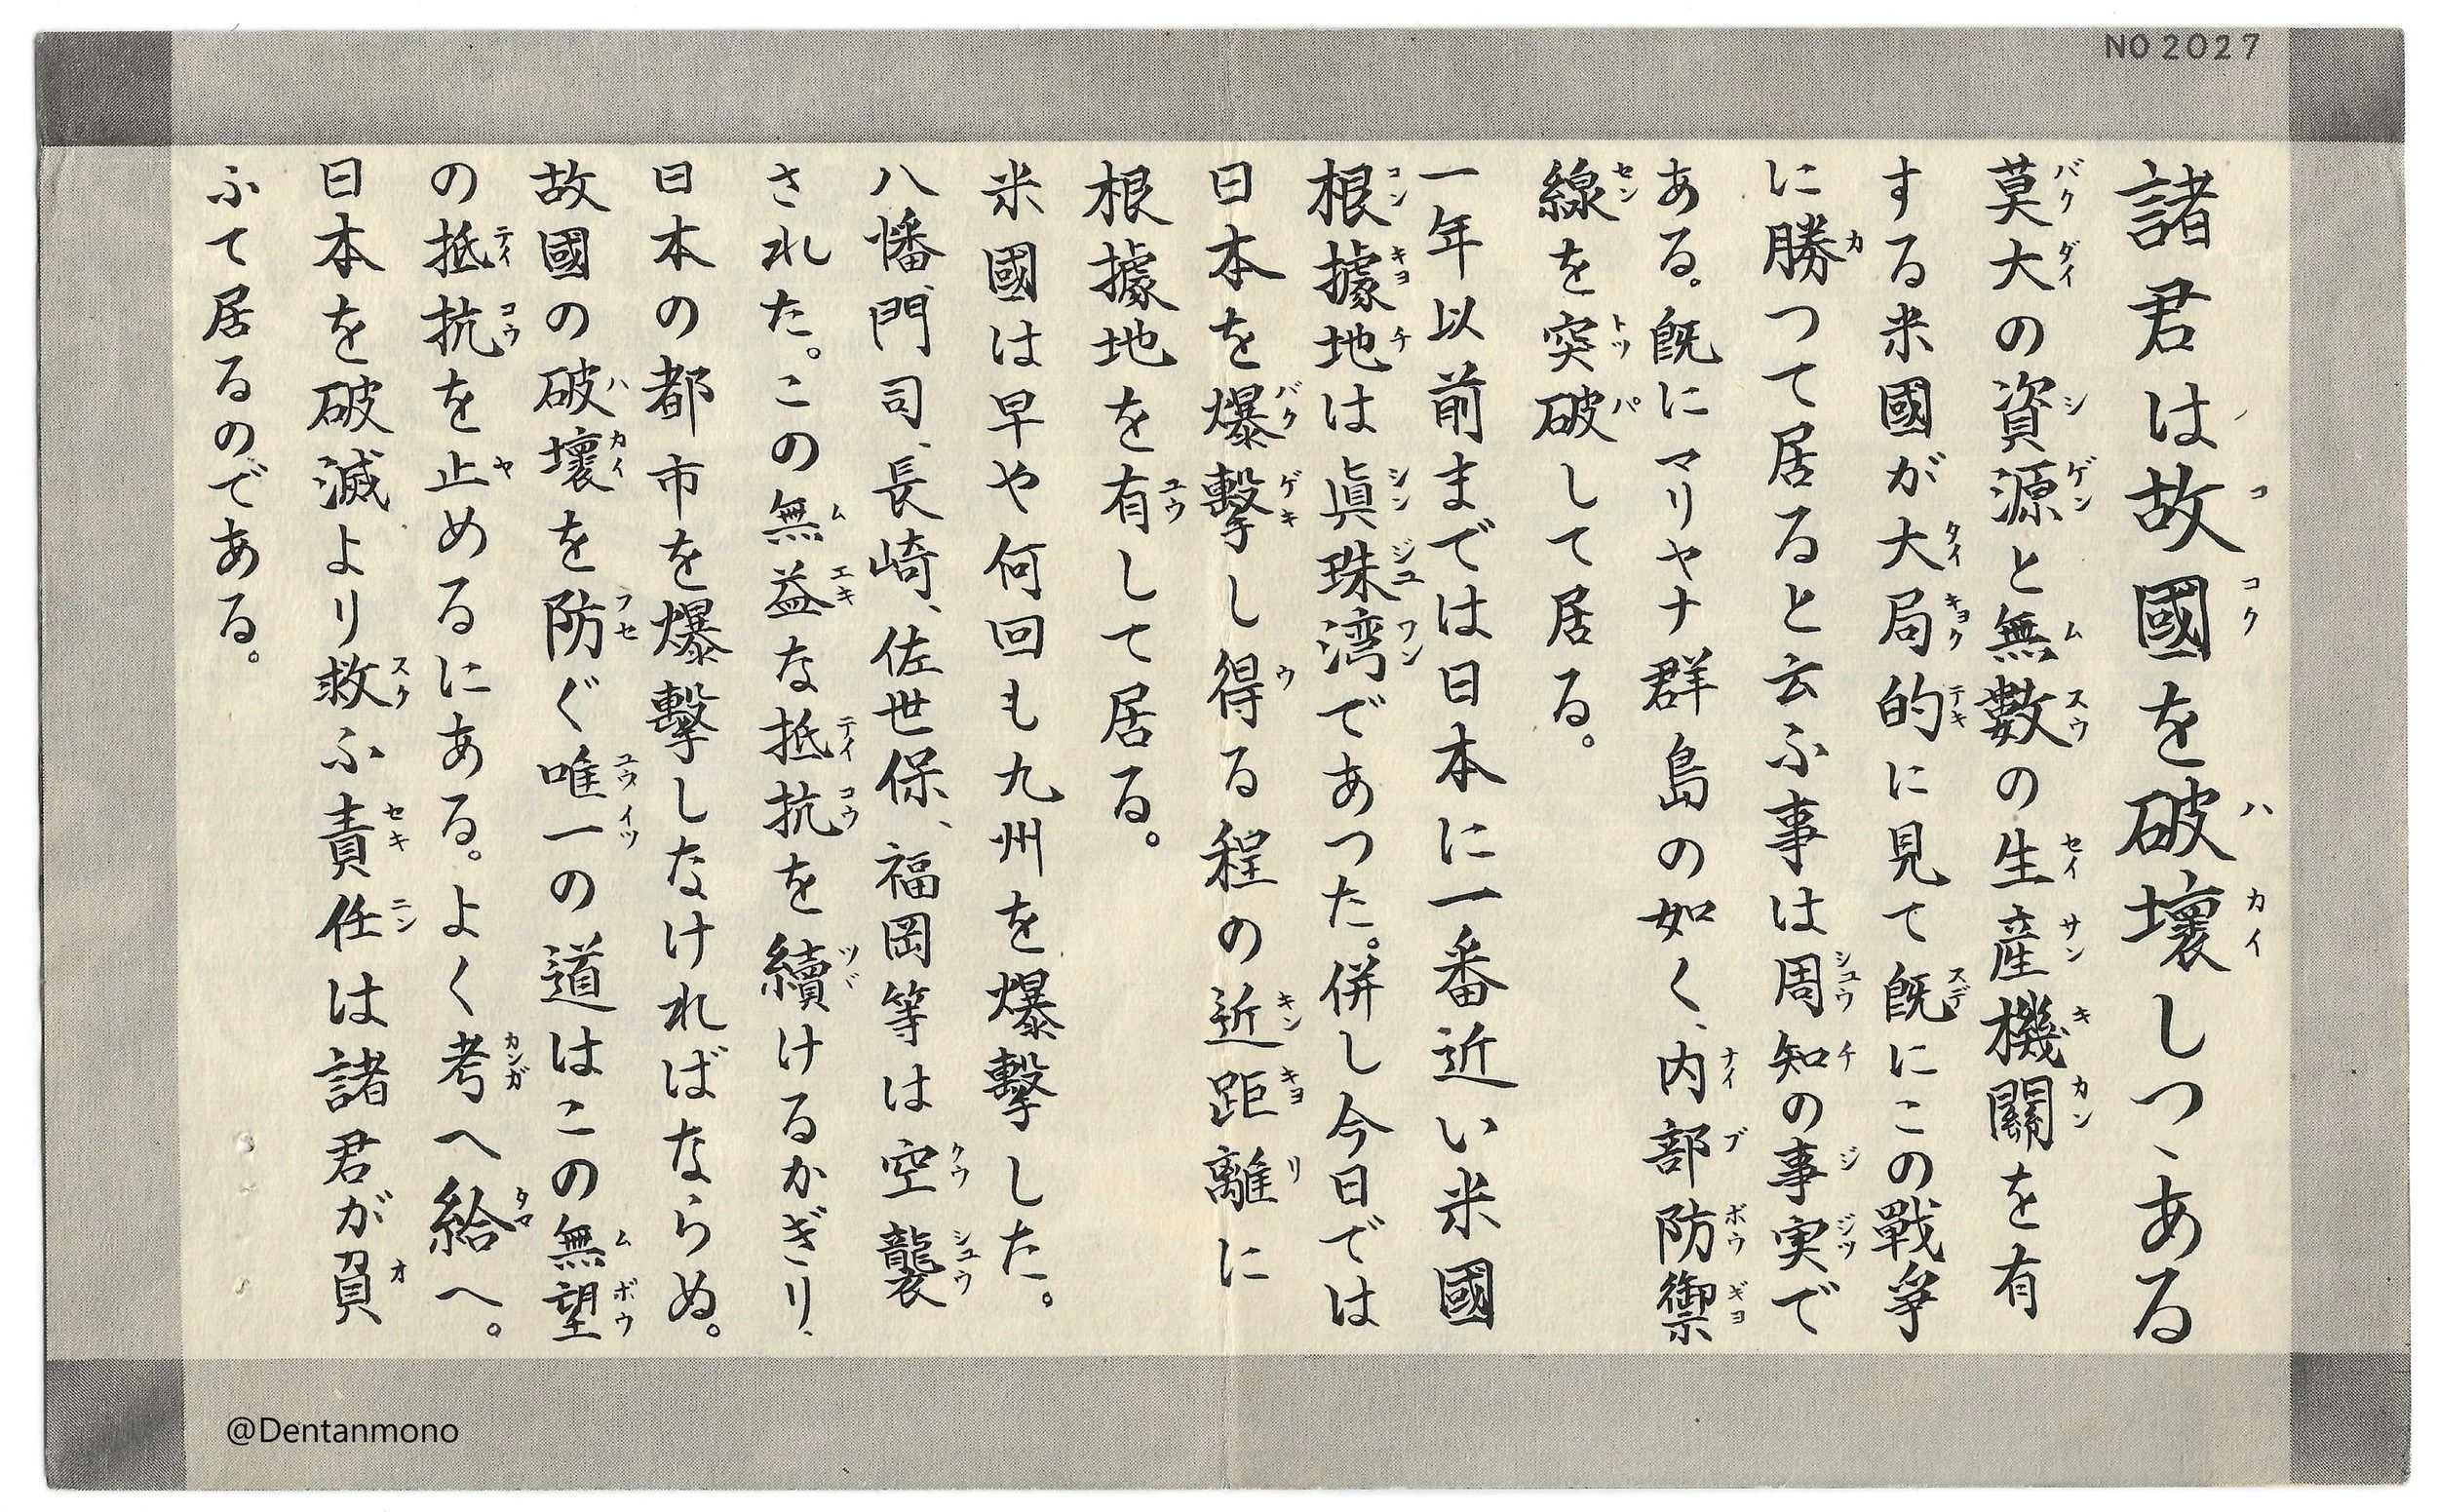 NO 2027
諸君は故國を破壞しつゝある
莫大の資源と無數の生産機關を有
する米國が大局的に見て既にこの戰爭
に勝つて居ると云ふ事は周知の事実で
ある。既にマリヤナ群島の如く、内部防禦
線を突破して居る。
一年以前までは日本に一番近い米國
根據地は眞珠湾であつた。併し今日では
日本を爆擊し得る程の近距離に
根據地を有して居る。
米國は早や何回も九州を爆擊した。
八幡、門司、長崎、佐世保、福岡等は空襲
された。この無益な抵抗を續けるかぎり、
日本の都市を爆擊しなければならぬ。
故國の破壞を防ぐ唯一の道はこの無望
の抵抗を止めるにある。よく考へ給へ。
日本を破滅より救ふ責任は諸君が負
ふて居るのである。
@Dentanmono